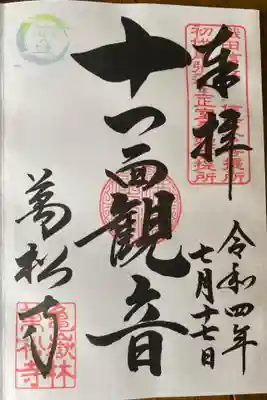 奉拝
令和四年
七月十七日
十一面観音
萬松寺
龜嶽林
萬松寺